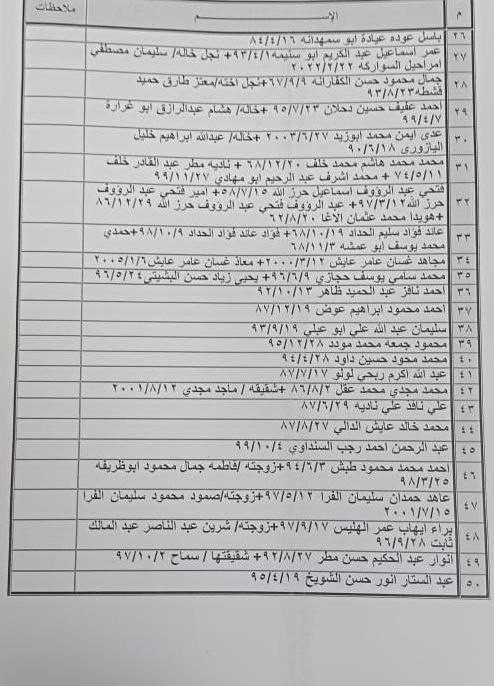 م الإســـــــم ملاحظات
٢٦ باسل عوده عيادة ابو سمهدانه ٨٤/٤/١٦
٢٧ عمر اسماعيل عبد الكريم ابو سنيمه ٩٣/٤/١+ نجل خاله/ سليمان مصطفي
امراحيل السواركه ٢٠٢٢/٢/٢٢
٢٨ جمال محمود حسن الكفارنه ٦٧/٩/٩+نجل اخته/معتز طارق حميد
قشطه ٩٣/٨/٢٣
٢٩ احمد عفيف حسين دحلان ٩٥/٧/٢٣ +خاله/ هشام عبدالرازق ابو غرارة
٩٩/٤/٧
٣٠ عدي ايمن محمد ابوزيد ٢٠٠٣/٦/٢٧ +خاله/ عبدالله ابراهيم خليل
اليازوري ٩٠/٦/١٨
٣١ محمد محمد هاشم محمد خلف ٦٨/١٢/٢٠ + ناديه مطر عبد القادر خلف
٧٤/٥/١١ + محمد اشرف عبد الرحيم ابو مهادي ٩٩/١١/٢٧
٣٢ فتحي عبد الرؤوف اسماعيل حرز الله ٥٨/٧/١٥+ امير فتحي عبد الرؤوف
حرز الله٩٧/٣/١٢+ عبد الرؤوف فتحي عبد الرؤوف حرز الله ٨٦/١٢/٢٩
+هويدا محمد عثمان الاغا ٦٢/٨/٢٠
٣٣ عائد فؤاد سليم الحداد ٦٨/١٠/١٩+ فؤاد عائد فؤاد الحداد ٩٨/١٠/٩+حمدي
محمد يوسف ابو عمشه ٦٨/١١/٣
٣٤ مجاهد غسان عامر عايش ٢٠٠٠/٣/١٢+ معاذ غسان عامر عايش ٢٠٠٥/١/٦
٣٥ محمد سامي يوسف حجازي ٩٦/٦/٩+ يحيى زياد حسن البشيتي ٩٦/٥/٢٤
٣٦ احمد نافز عبد الحميد ظاهر ٩٢/١٠/١٣
٣٧ احمد محمود ابراهيم عوض ٨٧/١٢/١٩
٣٨ سليمان عبد الله علي ابو عبلي ٩٣/٩/١٩
٣٩ محمود جمعه محمد مودد ٩٥/١٢/٢٨
٤٠ محمد محود حسين داود ٩٤/٤/٢٨
٤١ عبد الله اكرم ربحي لولو ٨٧/٧/١٧
٤٢ محمد مجدي محمد عقل ٨٦/٨/٢ +شقيقه / ماجد مجدي ٢٠٠١/٨/١٢
٤٣ علي نافذ علي ناديه ٨٧/٦/٢٩
٤٤ محمد خالد عايش الدالي ٨٧/٨/٢٧
٤٥ عبد الرحمن احمد رجب السنداوي ٩٩/١٠/٤
٤٦ احمد محمد محمود طبش ٩٤/٦/٣+ زوجته /فاطمه جمال محمود ابوظريفه
٩٨/٣/٢٥
٤٧ عاهد حمدان سليمان الفرا ٩٧/٥/١٢+زوجته/صمود محمود سليمان الفرا
٢٠٠١/٧/١٥
٤٨ براء ايهاب عمر الهليس ٩٧/٩/١٧+زوجته/ شرين عبد الناصر عبد المالك
ثابت ٩٦/٩/٢٨
٤٩ انوار عبد الحكيم حسن مطر ٩٢/٨/٢٧+ شقيقتها / سماح ٩٧/١٠/٢
٥٠ عبد الستار انور حسن الشويخ ٩٥/٤/١٩